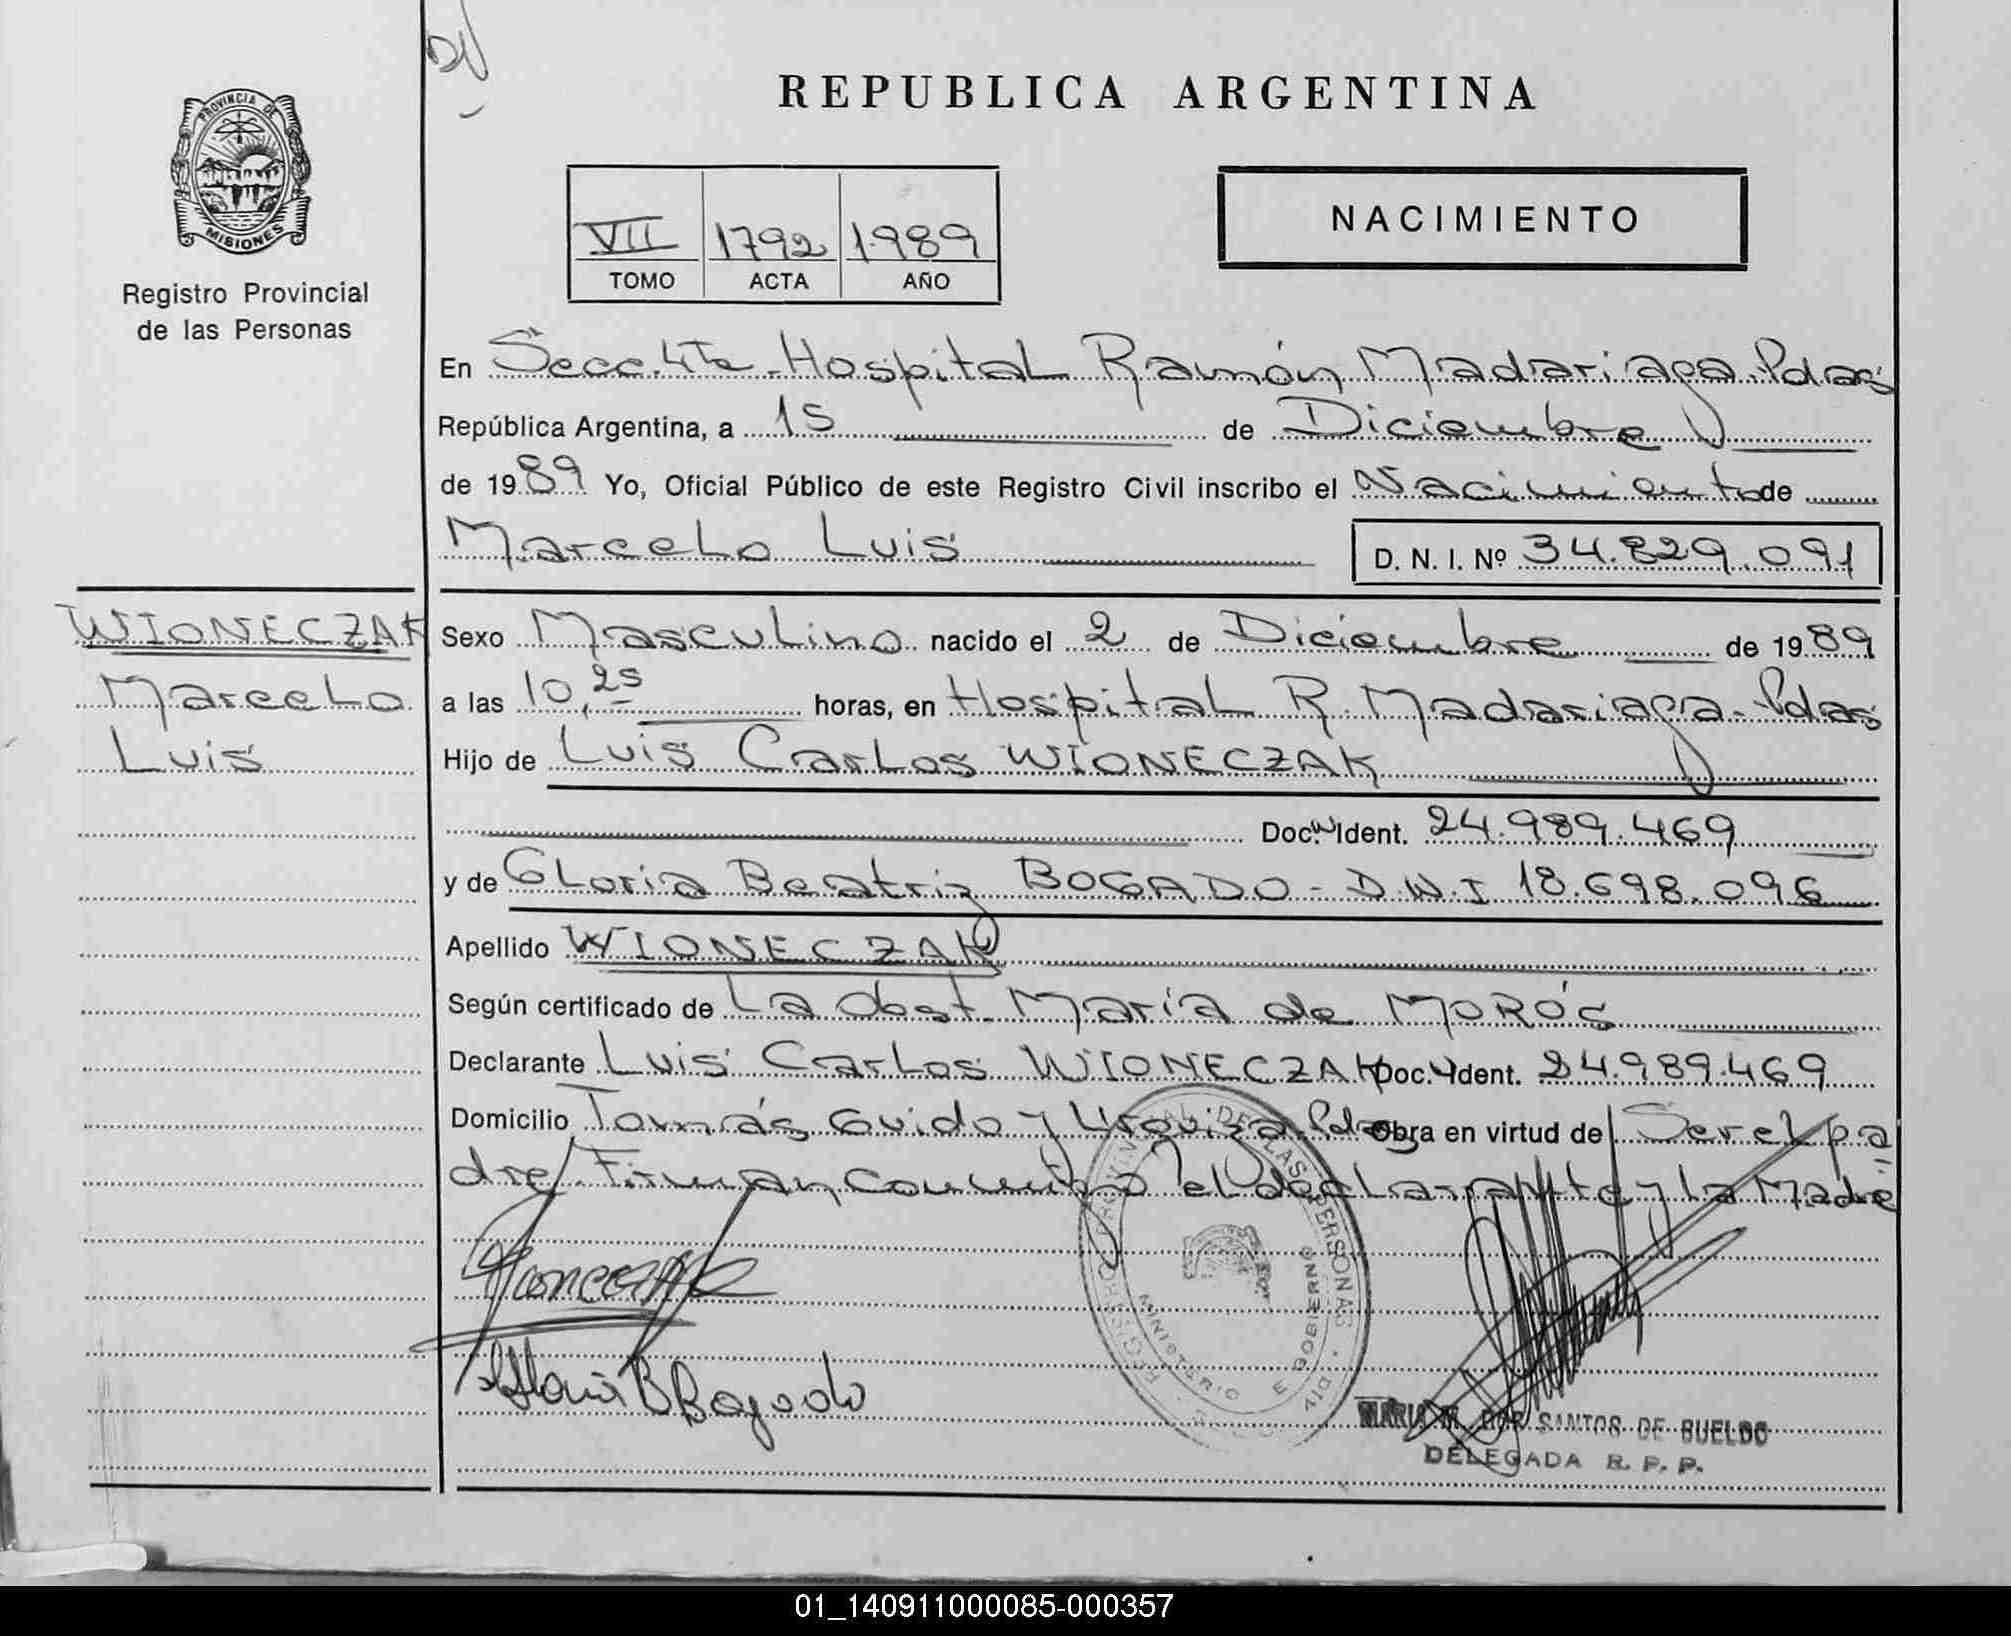 DN
REPUBLICA ARGENTINA
PROVINCIA DE
MISIONES
Registro Provincial
de las Personas
VII 1792 1989
TOMO ACTA AÑO
NACIMIENTO
En Secc. 4ta. Hospital Ramón Madariaga. Pdas
República Argentina, a 15 de Diciembre
de 1989 Yo, Oficial Público de este Registro Civil inscribo el Nacimiento de
Marcelo Luis
D. N. I. Nº 34.829.091
WIONECZAK
Marcelo
Luis
Sexo Masculino nacido el 2 de Diciembre de 1989
a las 10,25 horas, en Hospital R. Madariaga - Pdas
Hijo de Luis Carlos WIONECZAK
Doc. Ident. 24.989.469
y de Gloria Beatriz BOGADO - D.N.I 18.698.096
Apellido WIONECZAK
Según certificado de La Obst. María de MORÓS
Declarante Luis Carlos WIONECZAK Doc. Ident. 24.989.469
Domicilio Tomás Guido y Urquiza. Pdas Obra en virtud de Ser el pa
dre. Firman conmigo el declarante y la Madre
REGISTRO PROVINCIAL DE LAS PERSONAS
MINISTERIO DE GOBIERNO
MARIA M. DOS SANTOS DE BUELDO
DELEGADA R. P. P.
01_140911000085-000357